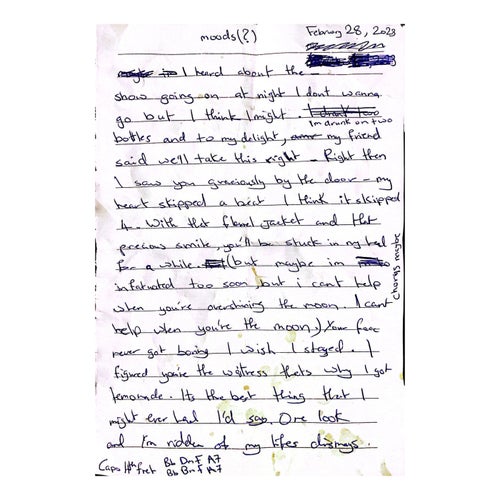 moods(?)
February 28, 2023
I heard about the
show going on at night I dont wanna
go but I think I might. I drank two
Im drunk on two
bottles and to my delight, my friend
said we'll take this right - Right then
I saw you graciously by the door - my
heart skipped a beat I think it skipped
4. With that flanel jacket and that
precious smile, you'll be stuck in my head
for a while. (but maybe im
infatuated too soon, but i cant help
when you're overshining the moon. I cant
help when you're the moon.) Your face
never got boring I wish I stayed. I
figured you're the waitress thats why I got
lemonade. Its the best thing that I
might ever had I'd say. One look
and I'm ridden of my lifes dismays.
chorus maybe
Capo 4th fret Bb Dm F A7
Bb Bm F A7